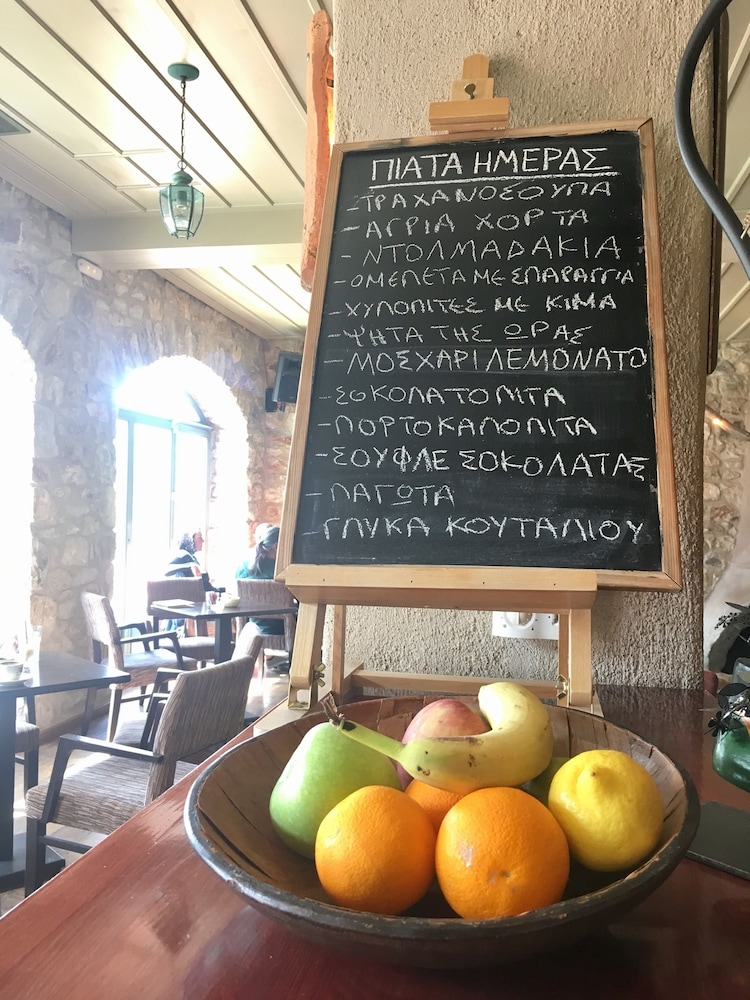 ΠΙΑΤΑ ΗΜΕΡΑΣ
-ΤΡΑΧΑΝΟΣΟΥΠΑ
-ΑΓΡΙΑ ΧΟΡΤΑ
-ΝΤΟΛΜΑΔΑΚΙΑ
-ΟΜΕΛΕΤΑ ΜΕ ΣΠΑΡΑΓΓΙΑ
-ΧΥΛΟΠΙΤΕΣ ΜΕ ΚΙΜΑ
-ΨΗΤΑ ΤΗΣ ΩΡΑΣ
-ΜΟΣΧΑΡΙ ΛΕΜΟΝΑΤΟ
-ΣΟΚΟΛΑΤΟΠΙΤΑ
-ΠΟΡΤΟΚΑΛΟΠΙΤΑ
-ΣΟΥΦΛΕ ΣΟΚΟΛΑΤΑΣ
-ΠΑΓΩΤΑ
-ΓΛΥΚΑ ΚΟΥΤΑΛΙΟΥ